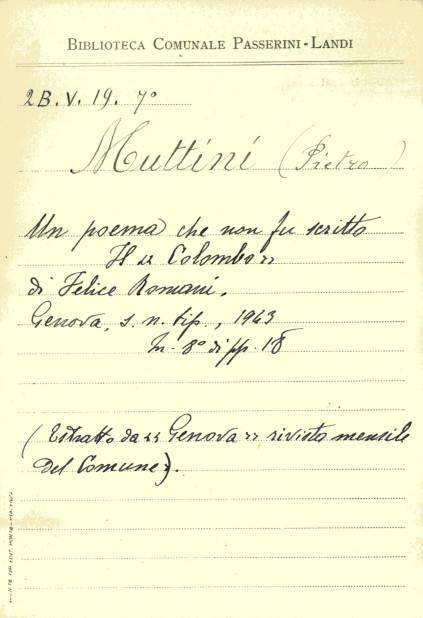 BIBLIOTECA COMUNALE PASSERINI-LANDI
2B. V. 19. 7°
Muttini (Pietro)
Un poema che non fu scritto
Il « Colombo »
di Felice Romani.
Genova, s. n. tip., 1943
In-8° di pp. 18
(Estratto da « Genova » rivista mensile
del Comune).